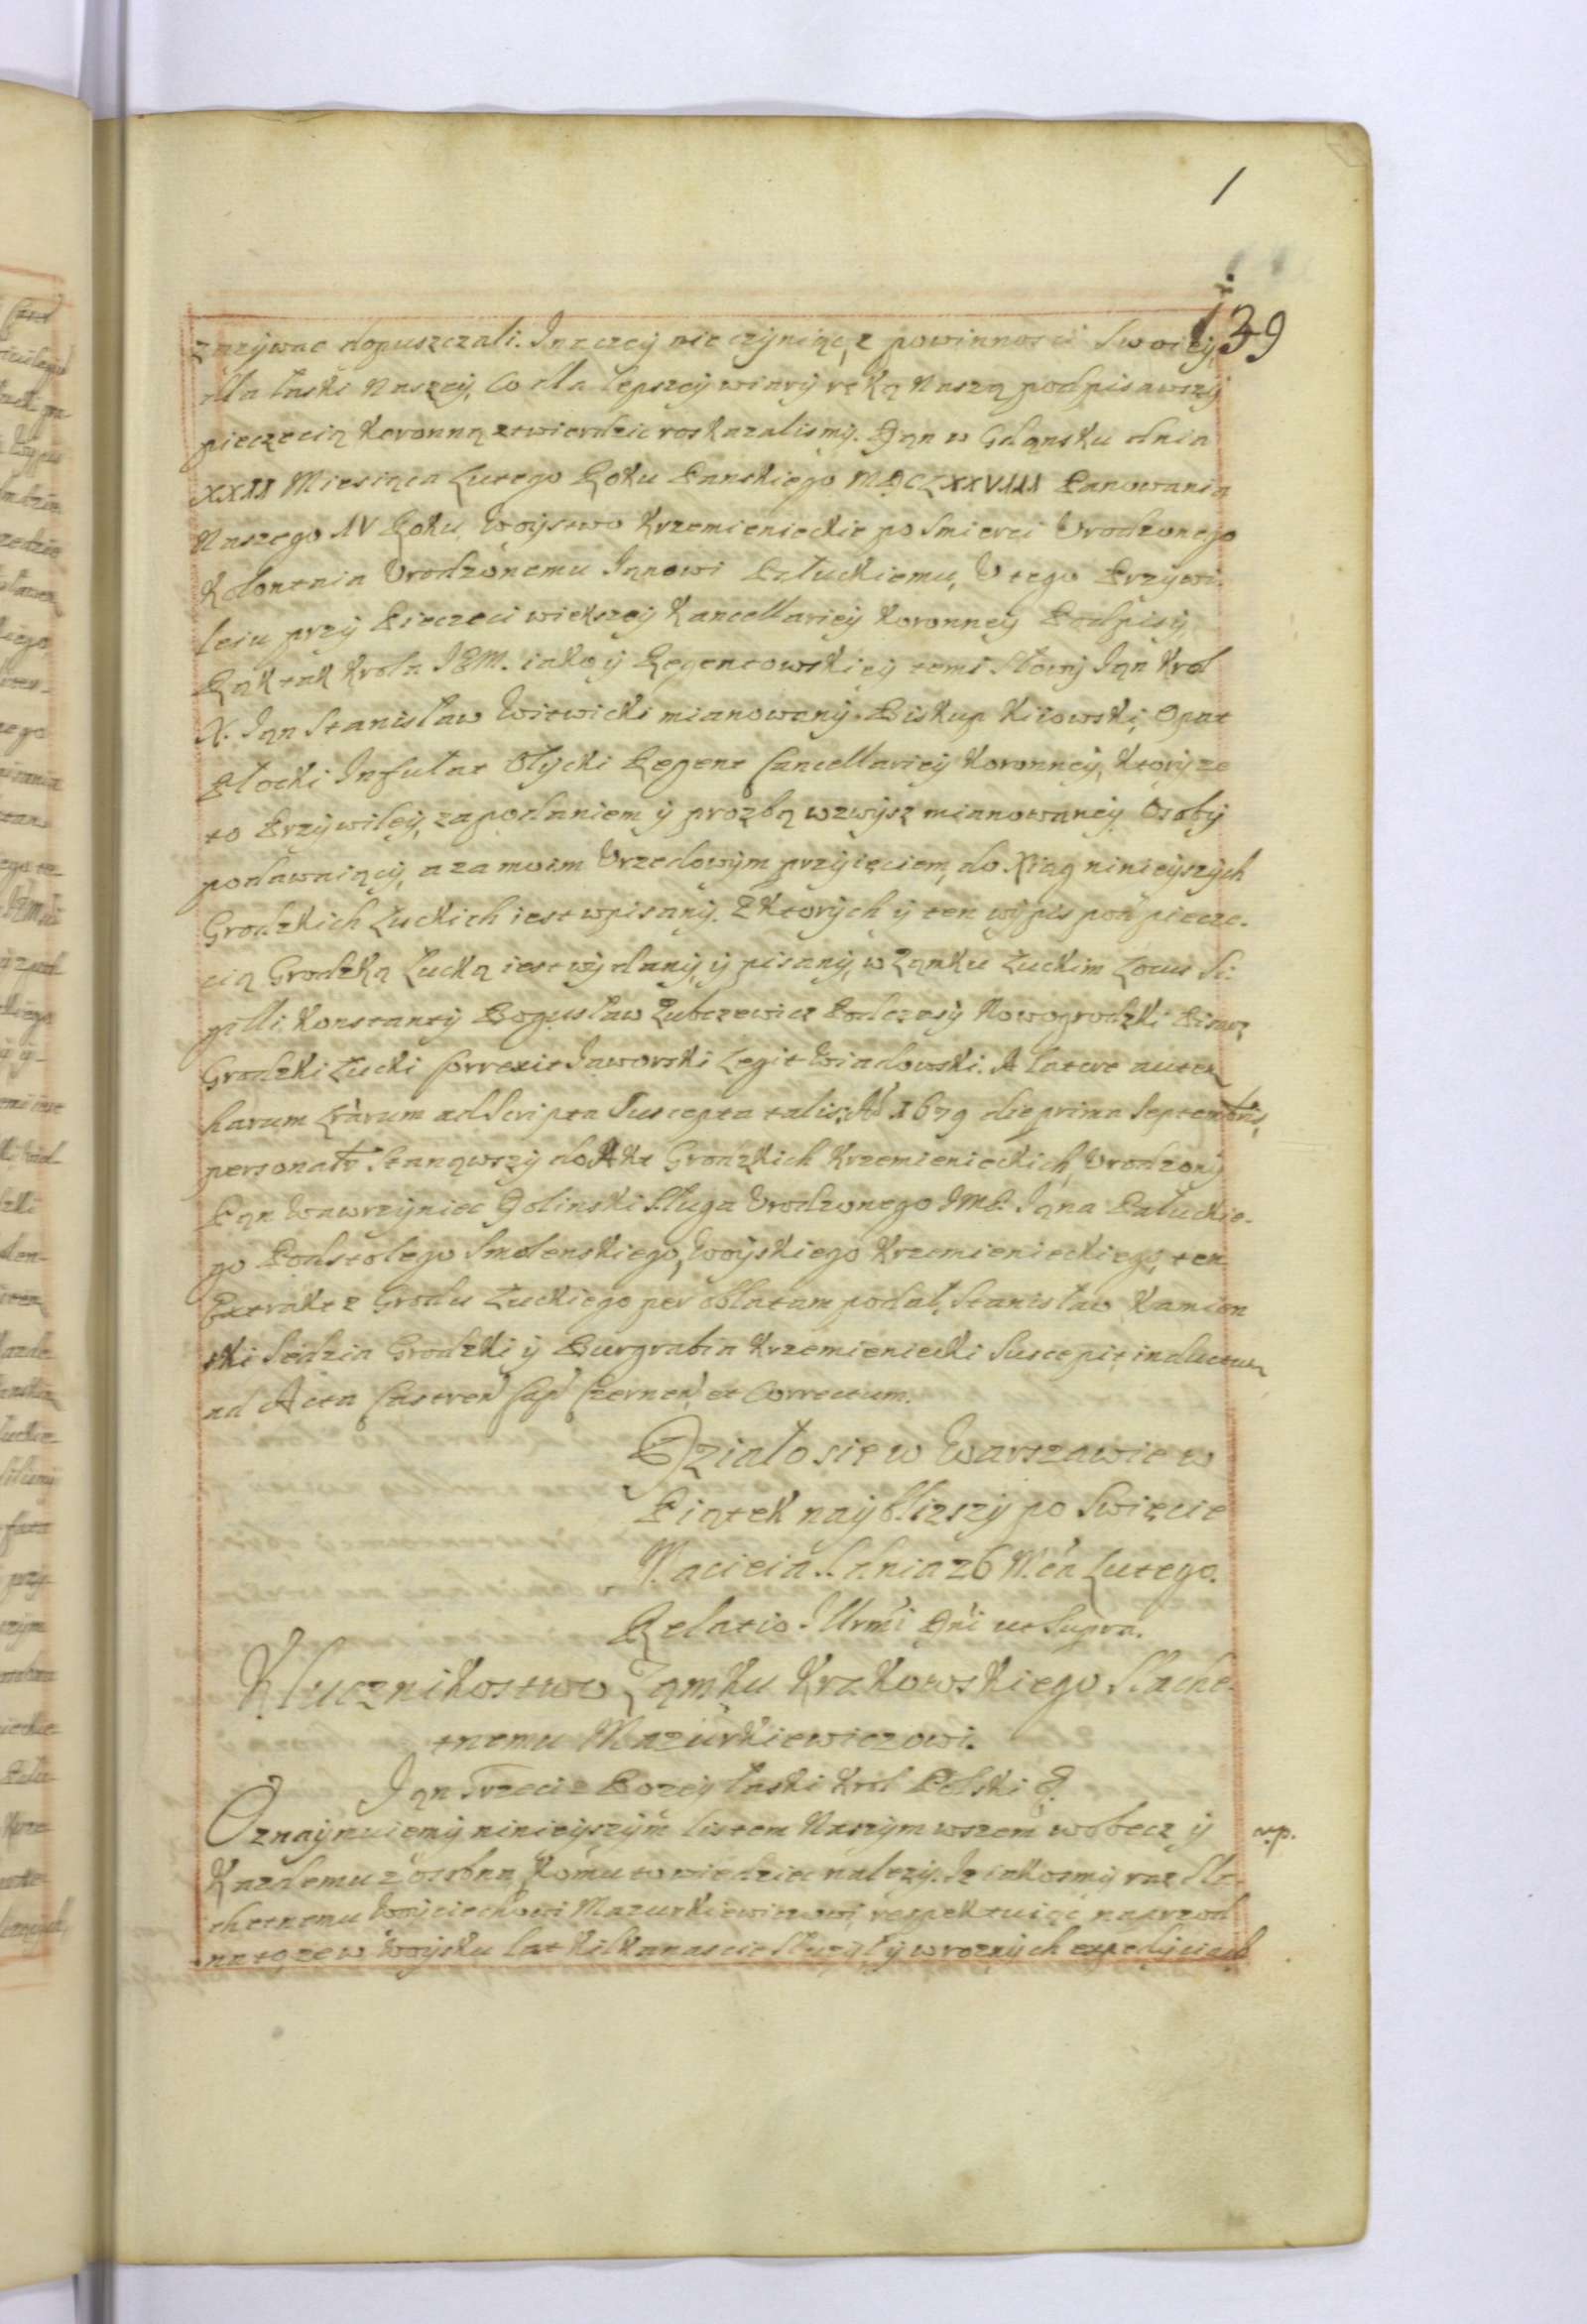 1
139
zazywac dopuszczali. Inaczey nie czyniąc, z powinnosci Swoiey,
dla łaski Naszey, Co dla lepszey wiary ręką Naszą podpisawszy
pieczęcią Koronną ztwierdzic roskazalismy. Dan w Gdąnsku dnia
XXII Miesiąca Lutego Roku Panskiego MDCLXXVIII Panowania
Naszego IV Roku, Woystwo Krzemienieckie po Smierci Urodzonego
Urodzonemu Iąnowi Pałuckiemu, U tego Przywi-
leiu przy Pieczeci wiekszey Kancellariey Koronney Podpisy,
Rąk tak Krola JEM. iako y Regentowskiey temi Słowy Ian Krol
X. Iąn Stanisław Witwicki mianowany Biskup Kiiowski, Opat
Płocki Infułat Ołycki Regent Cancellariey Koronney, Ktory ze
to Przywiley, za podaniem y prozbą wzwysz mianowaney Osoby
podawaiącÿ, a za moim Urzedowym przyięciem, do Xiąg ninieyszych
Grodzkich Łuckich iest wpisany. Z ktorych y ten wypis pod piecze-
cią Grodzką Łucką iest wydany, y pisany, w Ząmku Łuckim Locus Si-
gilli. Konstanty Bogusław Podczasy Nowogrodzki Pisarz
Grodzki Łucki Correxit Jaworski Legit Wiadowski. A latere autem
harum Lrarum adScripta Suscepta talis: Ao 1679 die prima Septembris,
personalr Stanąwszy do Akt Grodzkich Krzemienieckich, Urodzony
Pąn Wawrzyniec Golinski Sługa Urodzonego JMP. Iąna Pałuckie-
go Podstolego Smolenskiego, Woyskiego Krzemienieckiego, ten
Extrakt z Grodu Łuckiego per oblatam podał, Stanisław Kamien
ski Sędzia Grodzki y Burgrabia Krzemieniecki Suscepit, inductum
ad Acta Castren Cap Czernen, et Correctum.
Działo sie w Warszawie w
Piątek nayblizszy po Swięcie
Macieia S. dnia 26 Mca Lutego.
Relatio Illrmi Dni ut Supra.
Klucznikostwo Ząmku Krakowskiego Slache-
tnemu Mazurkiewiczowi.
Iąn Trzeci z Bozey łaski Krol Polski &.
Oznaymuiemy ninieyszym listem Naszym wszem wobec y
Kazdemu z osobna Komu to wiedziec nalezy. Iz iakosmy raz Sla-
chetnemu Woyciechowi Mazurkiewiczowi, respektuiąc naprzod
na to ze w Woysku lat Kilkanascie Słuzył, y w roznych expedyciach